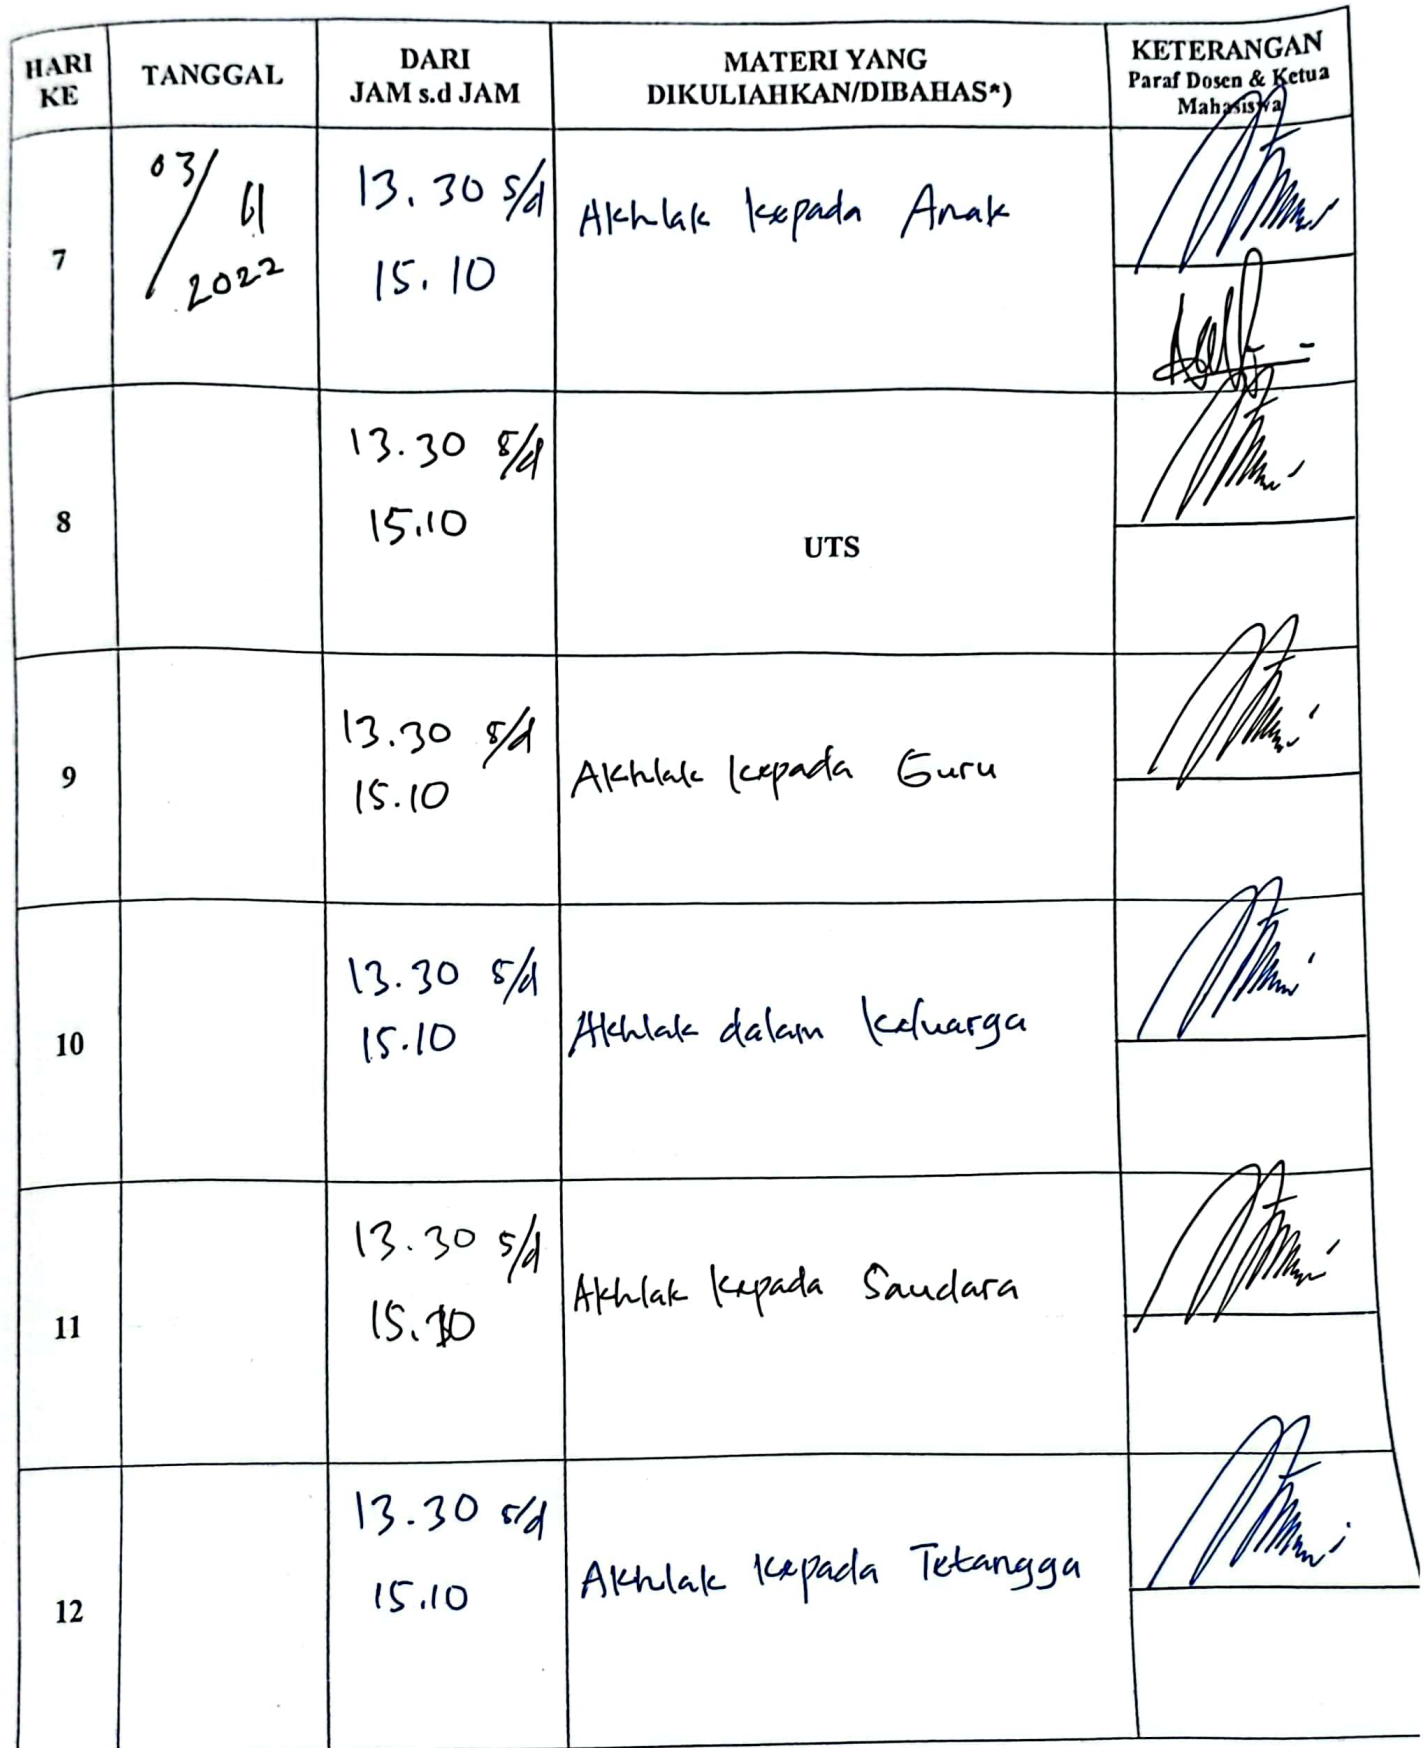 HARI KE
TANGGAL
DARI
JAM s.d JAM
MATERI YANG
DIKULIAHKAN/DIBAHAS*)
KETERANGAN
Paraf Dosen & Ketua
Mahasiswa
7
03/
11
2022
13.30 s/d
15.10
Akhlak kepada Anak
8
13.30 s/d
15.10
UTS
9
13.30 s/d
15.10
Akhlak kepada Guru
10
13.30 s/d
15.10
Akhlak dalam keluarga
11
13.30 s/d
15.10
Akhlak kepada Saudara
12
13.30 s/d
15.10
Akhlak kepada Tetangga